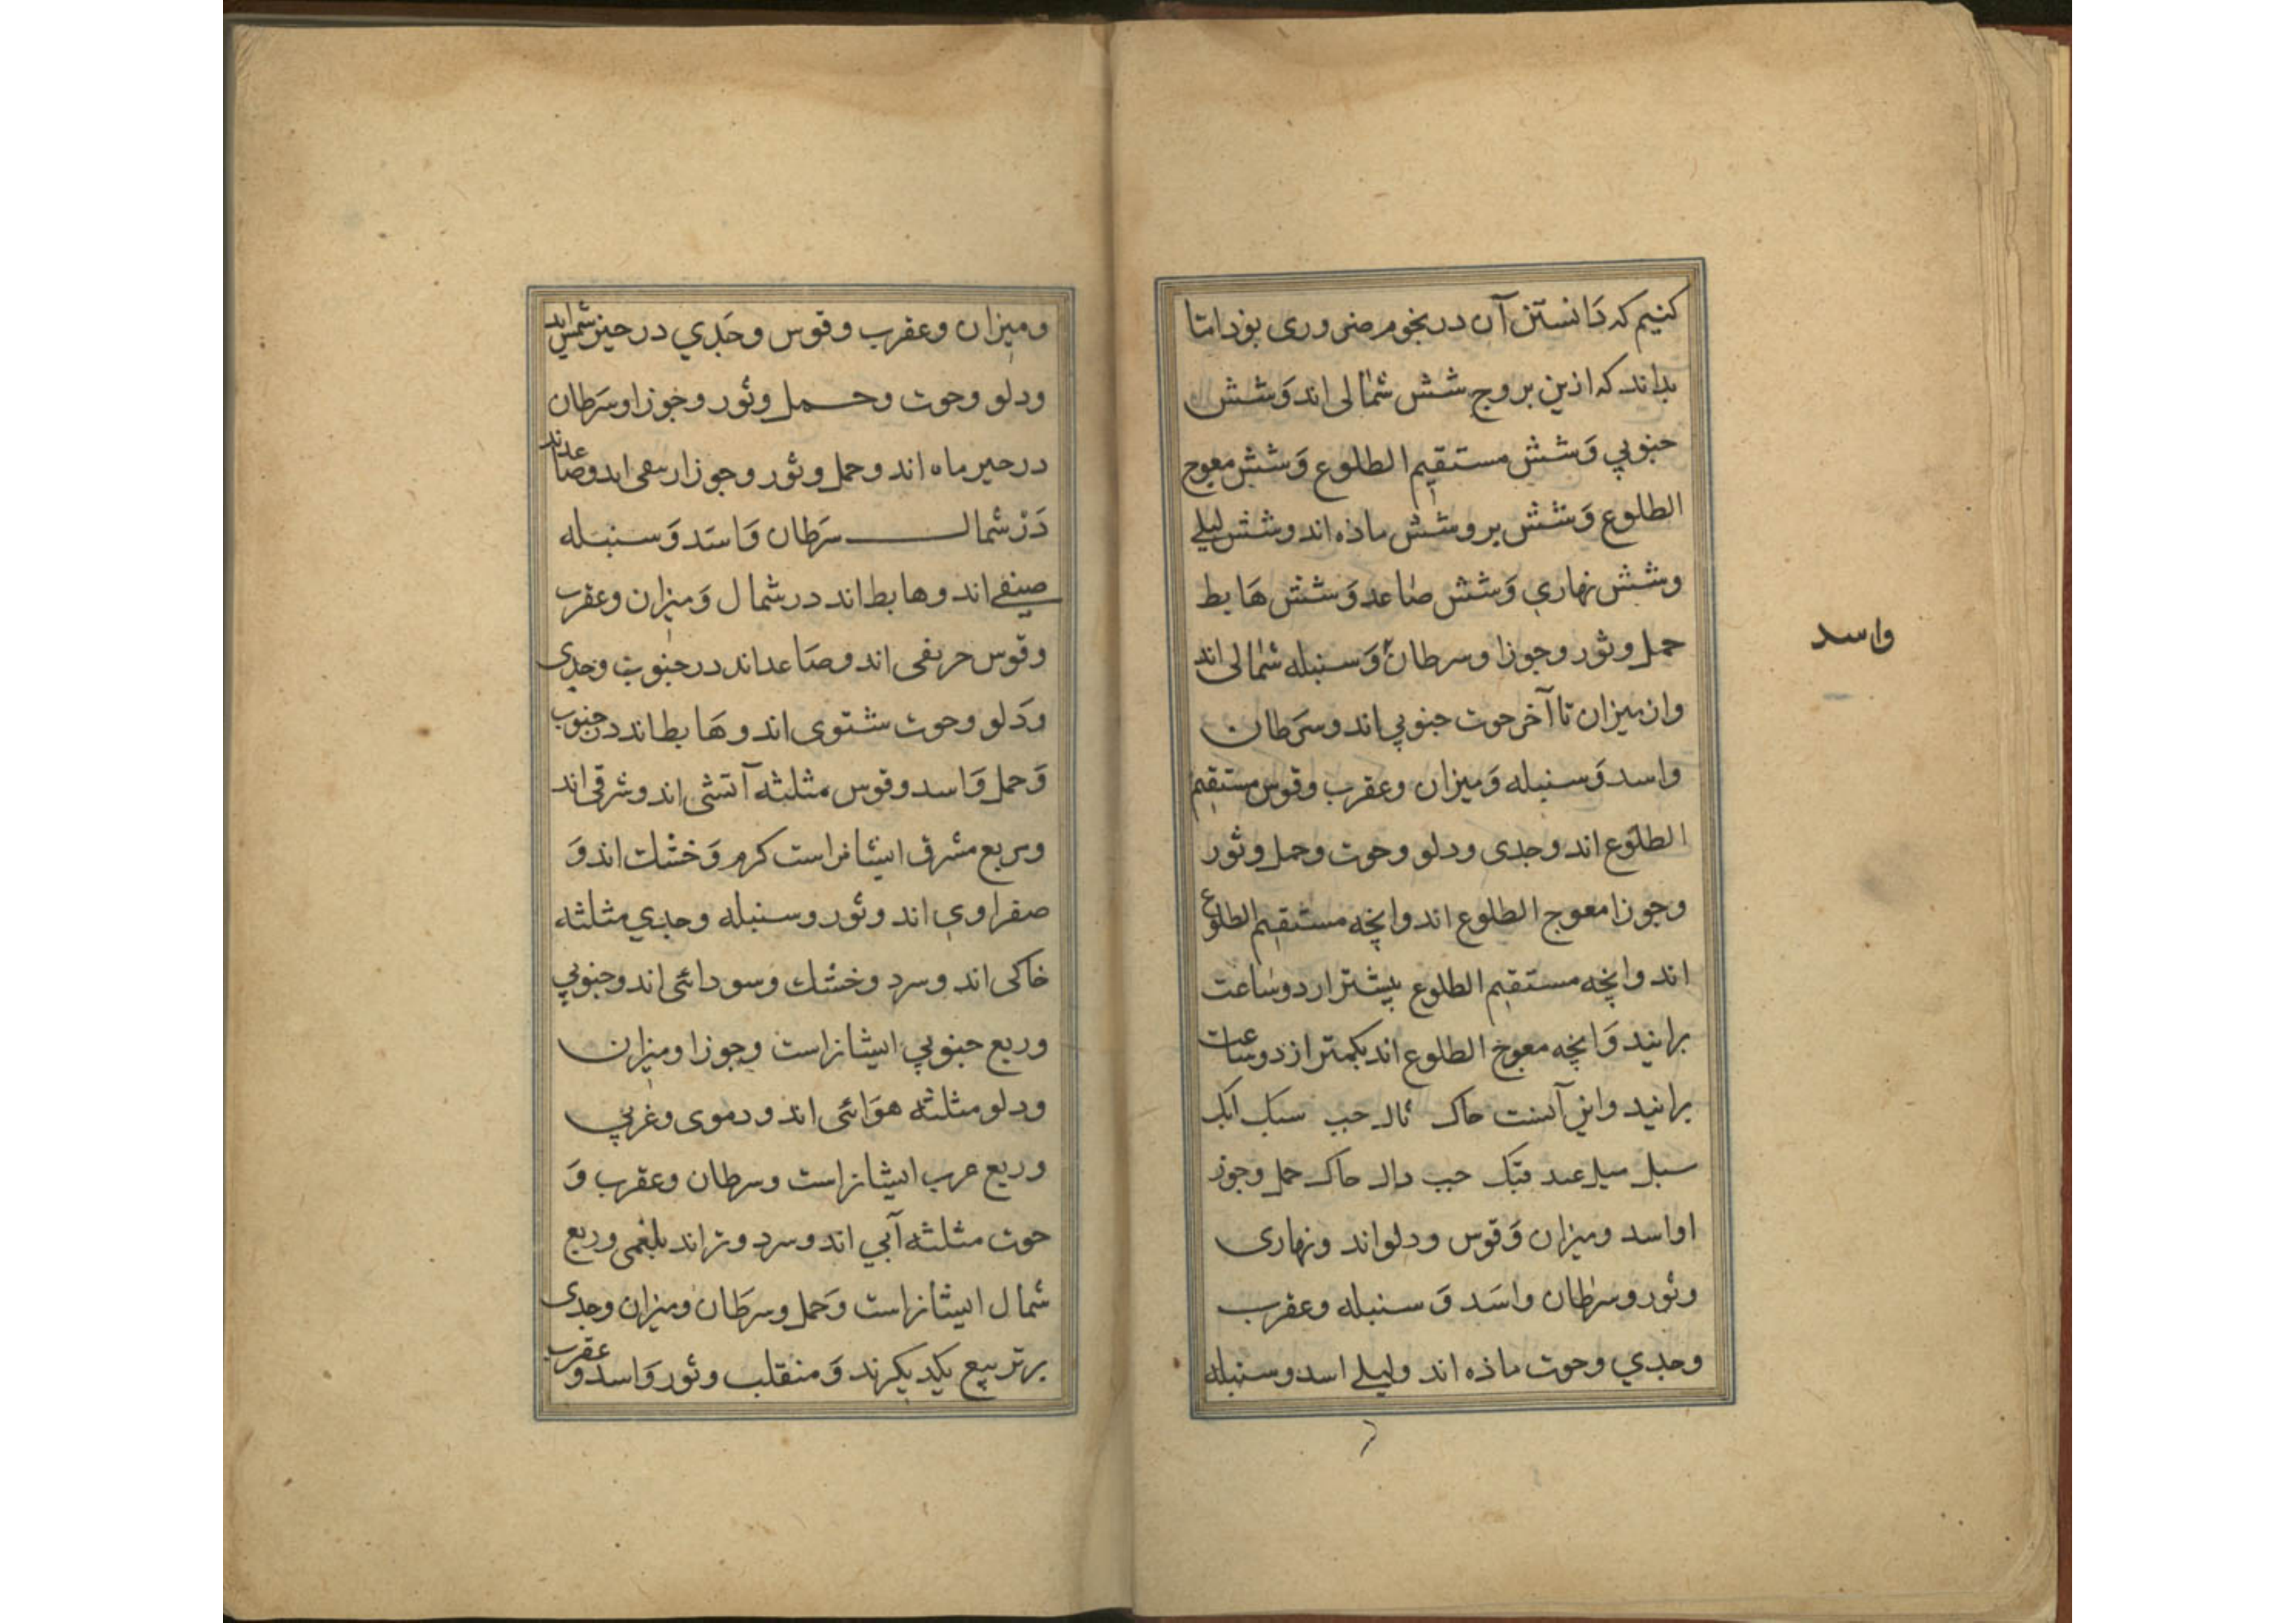 کنیم که دانستن آن در نجوم ضروری بود اما
بداند که ازین بروج شش شمالی اند وشش
جنوبی وشش مستقیم الطلوع وشش معوج
الطلوع وشش بر وشش ماذه اند وشش لیلی
وشش نهاری وشش صاعد وشش هابط
حمل وثور وجوزا وسرطان وسنبله شمالی اند
واسد
واز میزان تا آخر حوت جنوبی اند وسرطان
واسد وسنبله ومیزان وعقرب وقوس مستقیم
الطلوع اند وجدی ودلو وحوت وحمل وثور
وجوزا معوج الطلوع اند وانچه مستقیم الطلوع
اند وانچه مستقیم الطلوع بیشتر از دوساعت
برانید وانچه معوج الطلوع اند بکمتر از دوساعت
برانید واین آنست حاک حب
سبل حب دال حاک حمل وجوز
اواسد ومیزان وقوس ودلواند ونهاری
وثور وسرطان واسد وسنبله وعقرب
وجدي وحوت ماذه اند ولیلی اسد وسنبله
ومیزان وعقرب وقوس وجدي در حیز شمس اند
ودلو وحوت وحمل وثور وجوزا وسرطان
در حیز ماه اند وحمل وثور وجوزا ربیعی اند وصاعدند
در شمال سرطان واسد وسنبله
صیفی اند وهابط اند در شمال ومیزان وعقرب
وقوس خریفی اند وصاعداند در جنوب وجدی
ودلو وحوت شتوی اند وهابط اند در جنوب
وحمل واسد وقوس مثلثه آتشی اند وشرقی اند
وربع مشرق ایشانراست کرم وخشک اند و
صفراوی اند وثور وسنبله وجدي مثلثه
خاکی اند وسرد وخشک وسودائی اند وجنوبی
وربع جنوبی ایشانراست وجوزا ومیزان
ودلو مثلثه هوائی اند ودموی وغربی
وربع غرب ایشانراست وسرطان وعقرب و
حوت مثلثه آبی اند وسرد وتراند بلغمی وربع
شمال ایشانراست وحمل وسرطان ومیزان وجدی
بر تربیع یکدیکرند ومنقلب وثور واسد وعقرب